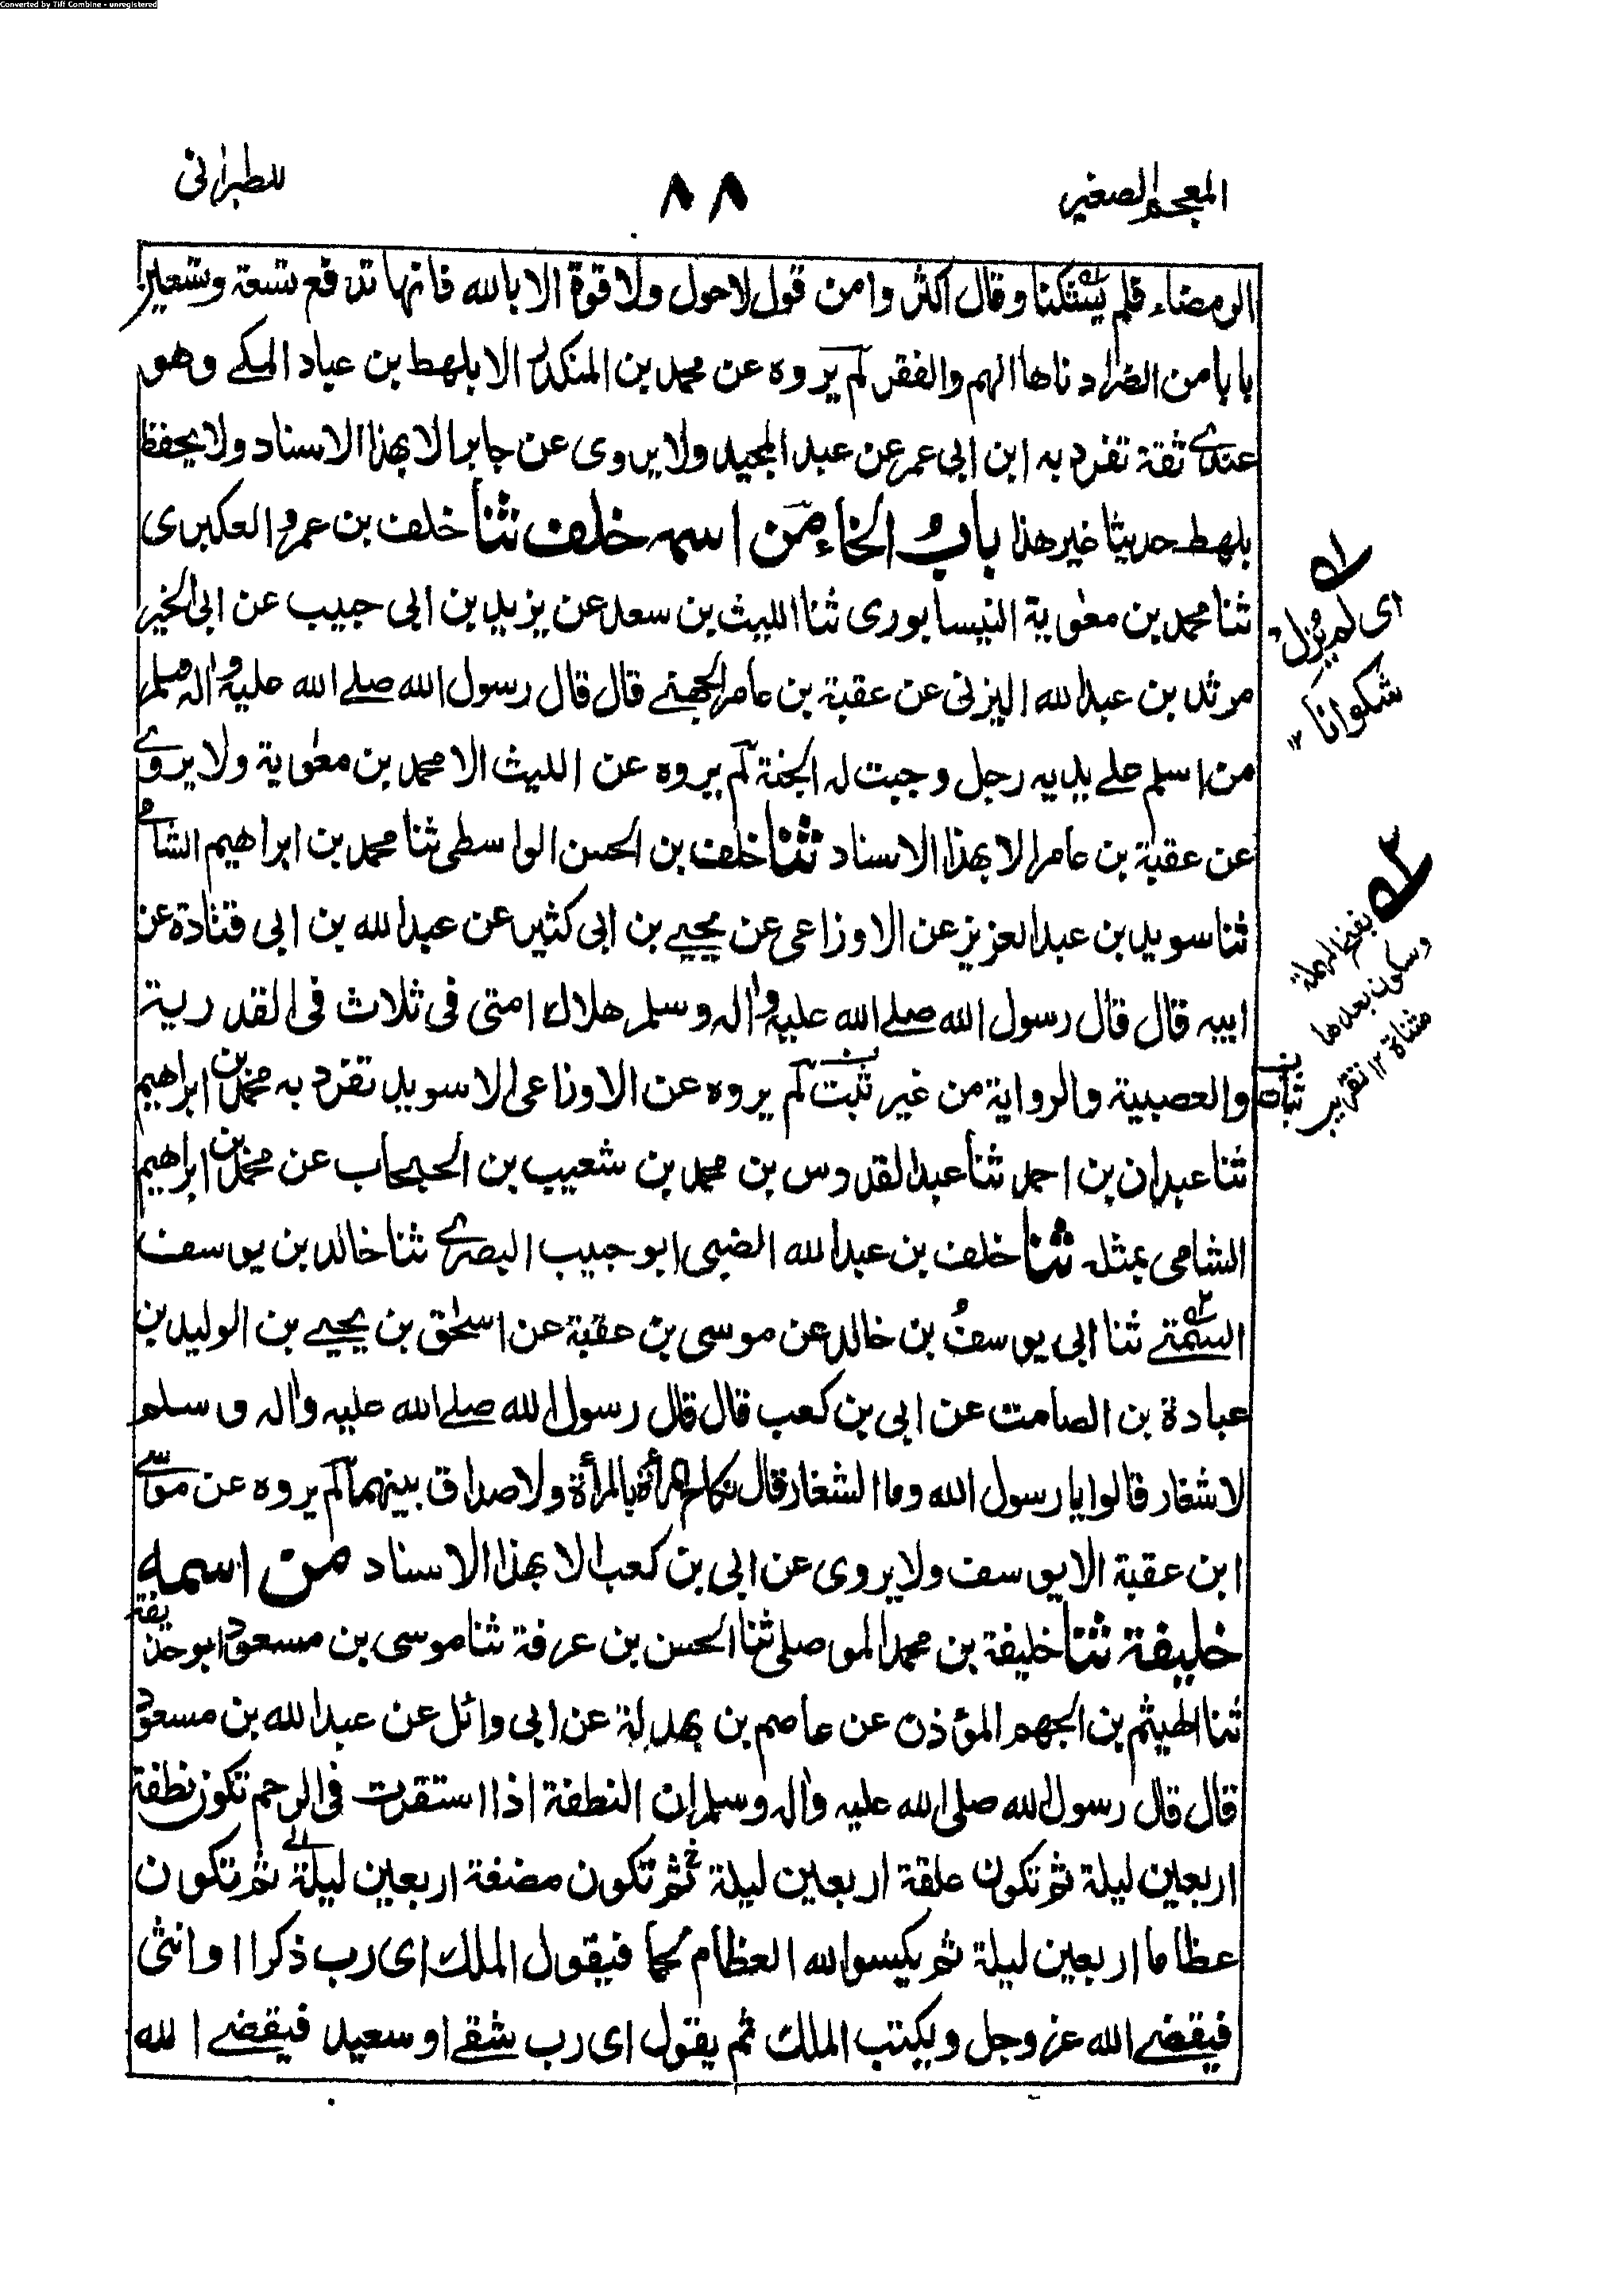 Converted by Tiff Combine - unregistered
المعجم الصغير
٨٨
للطبرانى
الرمضاء فلم يشكنا وقال اكثروا من قول لاحول ولا قوة الا بالله فانها تدفع تسعة وتسعين
بابا من الضر ادناها الهم والفقر لم يروه عن محمد بن المنكدر الا بلهط بن عباد المكے وهو
عندے ثقة تفرد به ابن ابى عمر عن عبد المجيد ولا يروى عن جابر الا بهذا الاسناد ولا يحفظ
بلهط حديثا غير هذا باب الخاء من اسمه خلف ثنا خلف بن عمرو العكبرى
ثنا محمد بن معٰوية النيسابورى ثنا الليث بن سعد عن يزيد بن ابى حبيب عن ابى الخير
مرثد بن عبد الله اليزنى عن عقبة بن عامر الجهنے قال قال رسول الله صلے الله عليه واٰله وسلم
من اسلم علے يديه رجل وجبت له الجنة لم يروه عن الليث الا محمد بن معٰوية ولا يروے
عن عقبة بن عامر الا بهذا الاسناد ثنا خلف بن الحسن الواسطى ثنا محمد بن ابراهيم الشامے
ثنا سويد بن عبد العزيز عن الاوزاعى عن يحيے بن ابى كثير عن عبد الله بن ابى قتادة عن
ابيه قال قال رسول الله صلے الله عليه واٰله وسلم هلاك امتى فى ثلاث فى القدرية
والعصبية والرواية من غير ثبت لم يروه عن الاوزاعى الا سويد تفرد به محمد بن ابراهيم
ثنا عبدان بن احمد ثنا عبد القدوس بن محمد بن شعيب بن الحبحاب عن محمد بن ابراهيم
الشامى بمثله ثنا خلف بن عبد الله الضبى ابو حبيب البصرے ثنا خالد بن يوسف
السمتے ثنا ابى يوسفُ بن خالد عن موسى بن عقبة عن اسحٰق بن يحيے بن الوليد بن
عبادة بن الصامت عن ابى بن كعب قال قال رسول الله صلے الله عليه واٰله وسلم
لا شغار قالوا يا رسول الله وما الشغار قال نكاح المرأة بالمرأة ولا صداق بينهما لم يروه عن موسے
ابن عقبة الا يوسف ولا يروى عن ابى بن كعب الا بهذا الاسناد من اسمه
خليفة ثنا خليفة بن محمد الموصلى ثنا الحسن بن عرفة ثنا موسى بن مسعود ابو حذيفة
ثنا الهيثم بن الجهم المؤذن عن عاصم بن بهدلة عن ابى وائل عن عبد الله بن مسعود
قال قال رسول الله صلى الله عليه واٰله وسلم ان النطفة اذا استقرت فى الرحم تكون نطفة
اربعين ليلة ثم تكون علقة اربعين ليلة ثم تكون مضغة اربعين ليلة ثم تكون
عظاما اربعين ليلة ثم يكسو الله العظام لحما فيقول الملك اى رب ذكرا او انثى
فيقضے الله عز وجل ويكتب الملك ثم يقول اى رب شقے او سعيد فيقضے الله
اى لم يُزِل
شكوانا ١٢
وسكون بعدها
مثناة ١٢ تقرير